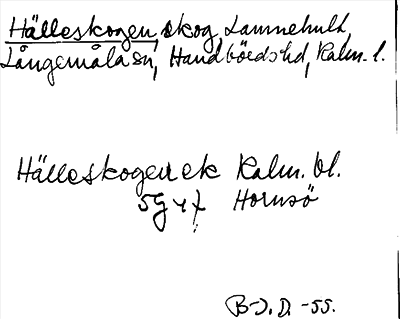 Hälleskogen, skog, Lannehult,
Långemåla sn, Handbörds hd, Kalm. l.
Hälleskogen ek Kalm. bl.
5G 4f Hornsö
B-J. D. -55.